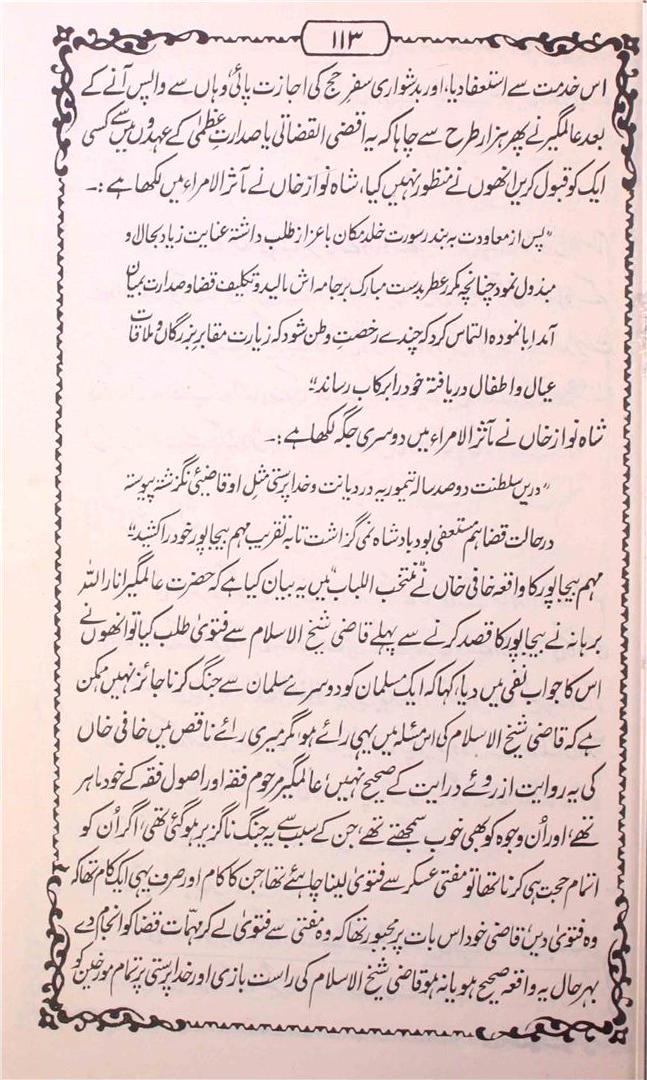 ۱۱۳
اس خدمت سے استعفا دیا، اور بدشواری سفرِ حج کی اجازت پائی، وہاں سے واپس آنے کے
بعد عالمگیر نے پھر ہزار طرح سے چاہا کہ یہ اقضی القضاتی یا صدارتِ عظمیٰ کے عہدوں میں سے کسی
ایک کو قبول کریں انھوں نے منظور نہیں کیا، شاہ نواز خاں نے مآثر الامراء میں لکھا ہے :۔
"پس از معاودت بہ بندر سورت خلد مکان باعزاز طلب داشتہ عنایت زیاد بحال او
مبذول نمود چنانچہ مکرر عطر بدست مبارک بر جامہ اش مالید و تکلیف قضا و صدارت بمیان
آمد ابا نمودہ التماس کرد کہ چندے رخصتِ وطن شود کہ زیارت مقابر بزرگان و ملاقات
عیال و اطفال دریافتہ خود را برکاب رساند"
شاہ نواز خاں نے مآثر الامراء میں دوسری جگہ لکھا ہے :۔
"دریں سلطنت دو صد سالہ تیموریہ در دیانت و خدا پرستی مثل او قاضیٔ نگزشتہ پیوستہ
در حالت قضا ہم مستعفی بود بادشاہ نمی گزاشت تا بہ تقریب مہم بیجاپور خود را کشید"
مہم بیجاپور کا واقعہ خافی خاں نے "منتخب اللباب" میں یہ بیان کیا ہے کہ حضرت عالمگیر انار اللہ
برہانہ نے بیجاپور کا قصد کرنے سے پہلے قاضی شیخ الاسلام سے فتویٰ طلب کیا تو انھوں نے
اس کا جواب نفی میں دیا، کہا کہ ایک مسلمان کو دوسرے مسلمان سے جنگ کرنا جائز نہیں ممکن
ہے کہ قاضی شیخ الاسلام کی اس مسئلہ میں یہی رائے ہو، مگر میری رائے ناقص میں خافی خاں
کی یہ روایت از روئے درایت کے صحیح نہیں، عالمگیر مرحوم فقہ اور اصول فقہ کے خود ماہر
تھے، اور اُن وجوہ کو بھی خوب سمجھتے تھے، جن کے سبب سے یہ جنگ ناگزیر ہو گئی تھی، اگر اُن کو
اتمام حجت ہی کرنا تھا تو مفتی عسکر سے فتویٰ لینا چاہئے تھا، جن کا کام اور صرف یہی ایک کام تھا کہ
وہ فتویٰ دیں، قاضی خود اس بات پر مجبور تھا کہ وہ مفتی سے فتویٰ لے کر مہمّات قضا کو انجام دے
بہرحال یہ واقعہ صحیح ہو یا نہ ہو قاضی شیخ الاسلام کی راست بازی اور خدا پرستی پر تمام مورخین کو